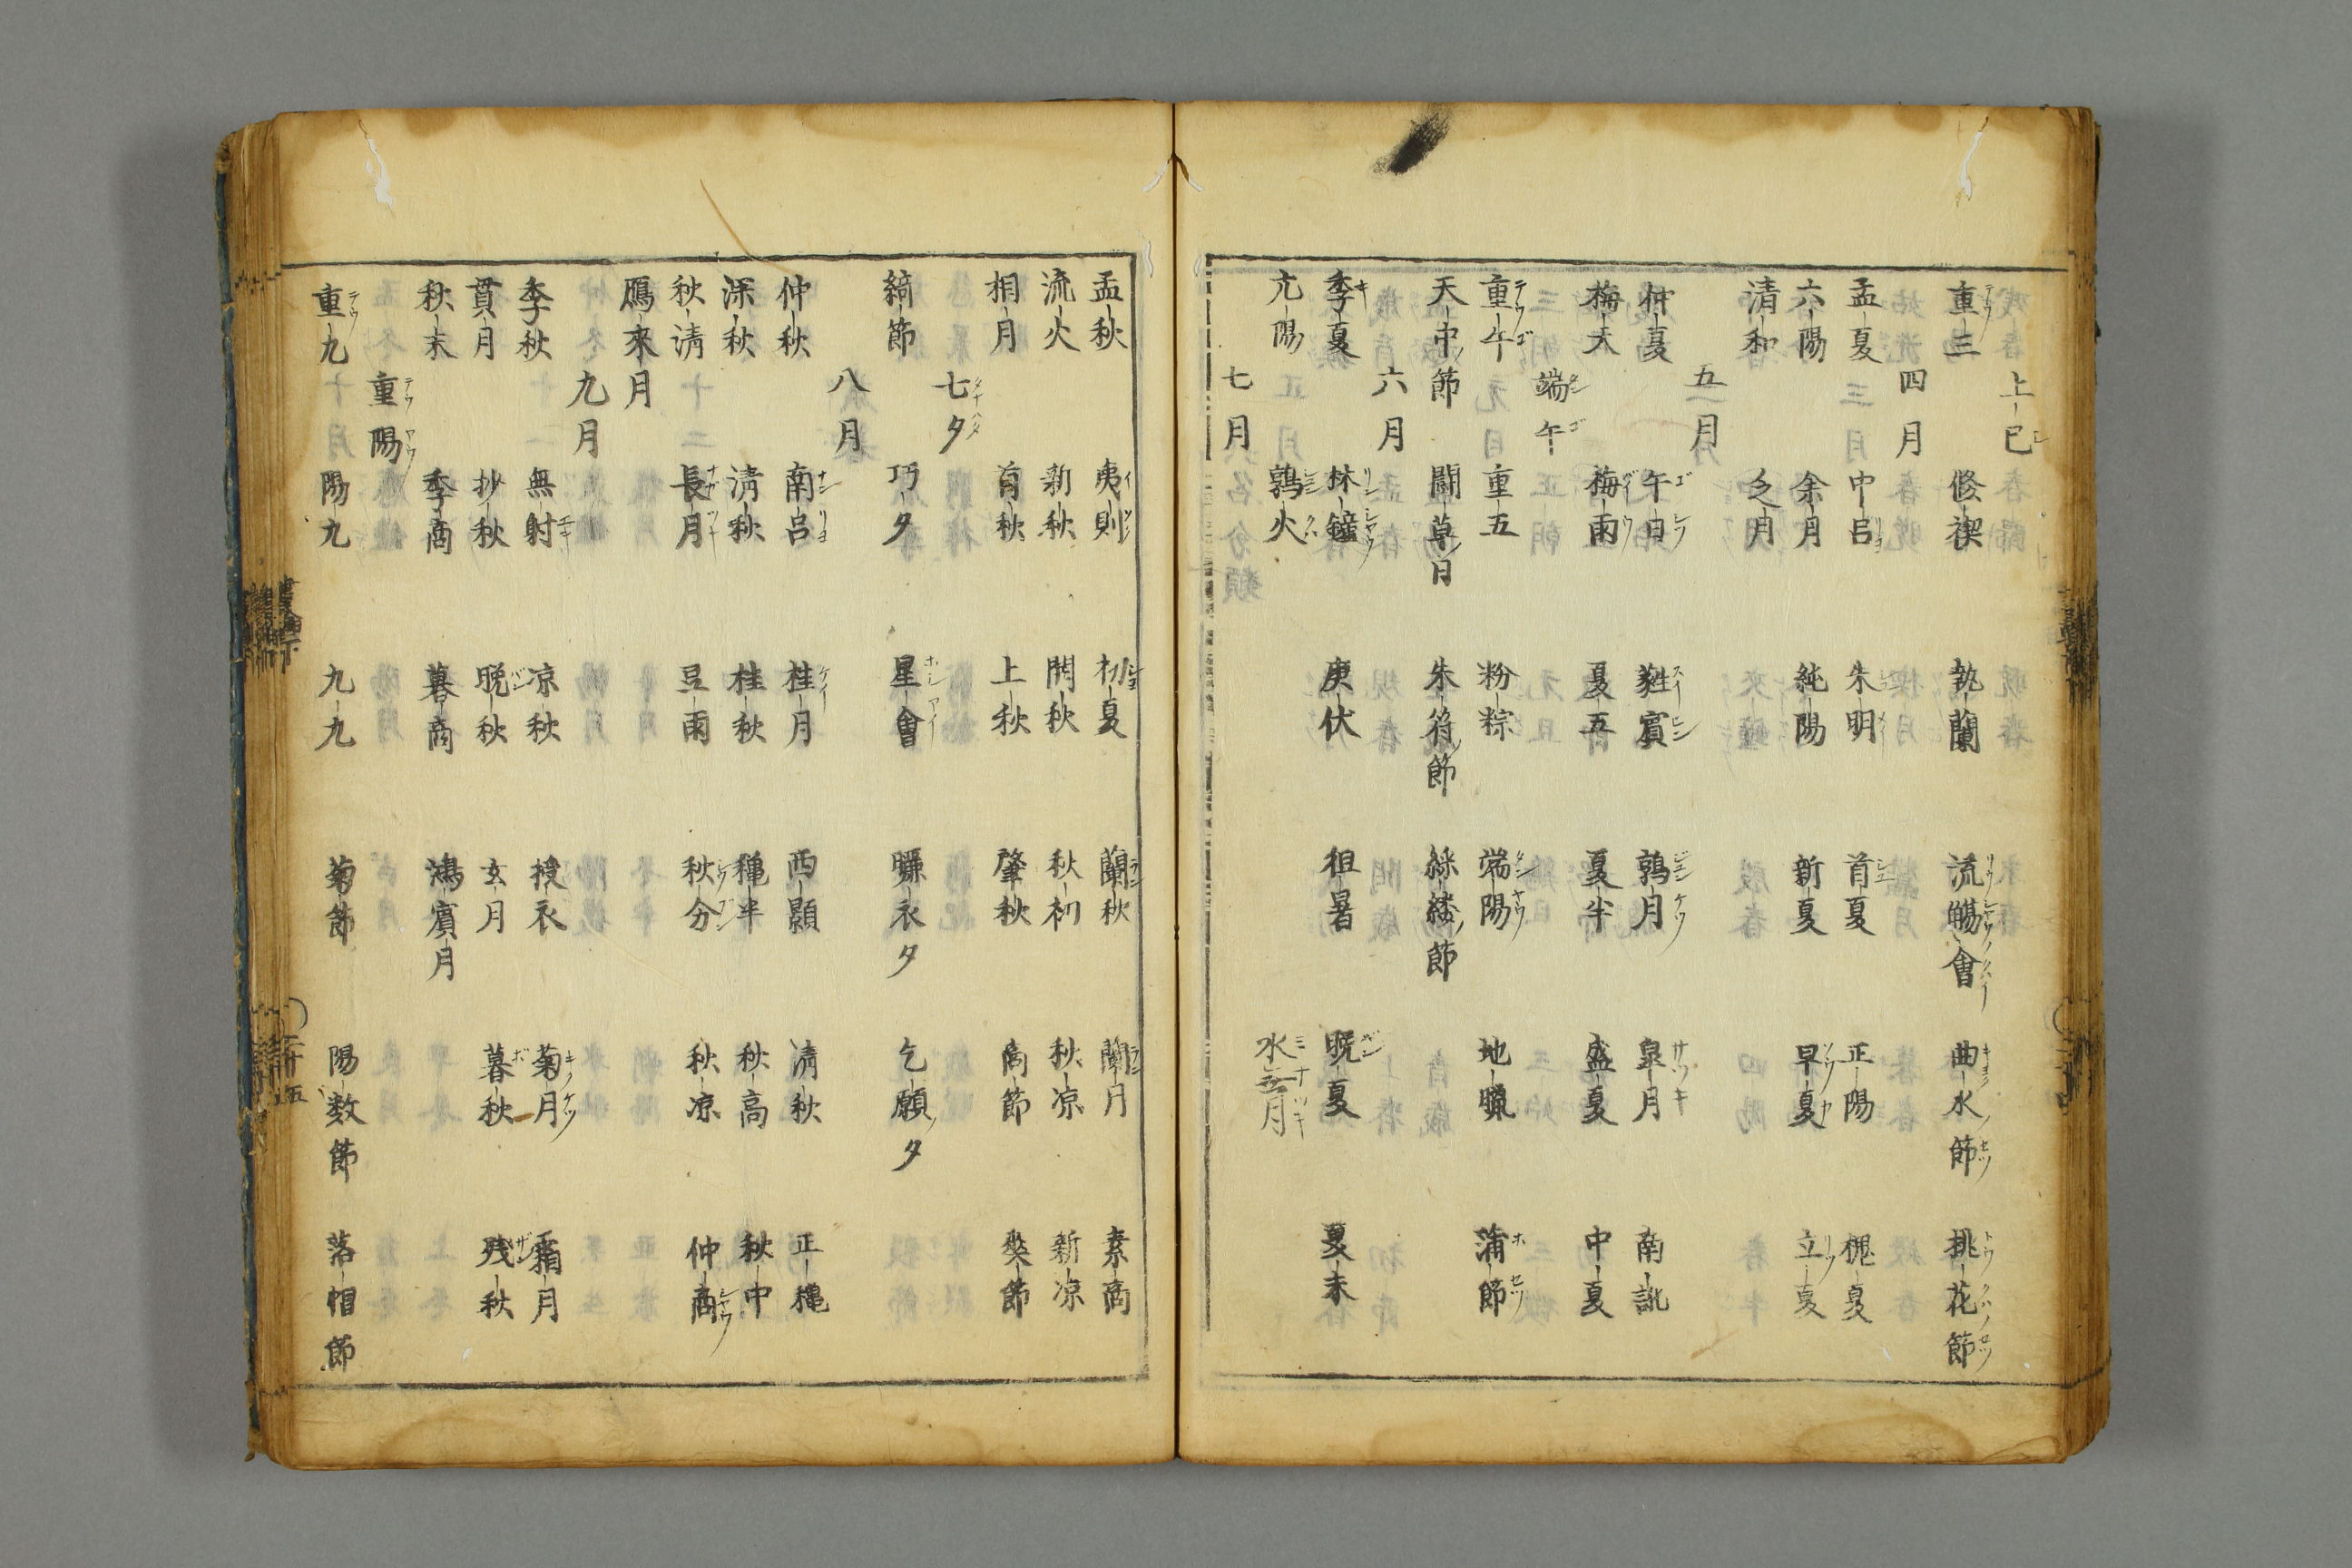 上巳
重三 脩禊 執蘭 流觴會 曲水節 桃花節
四月
孟夏 中呂 朱明 首夏 正陽 槐夏
六陽 余月 純陽 新夏 早夏 立夏
清和 乏月
五月
仲夏 午日 蕤賓 鶉月 皐月 南訛
梅天 梅雨 夏五 夏半 盛夏 中夏
端午
重午 重五 粉粽 端陽 地臘 蒲節
天中節 闘草日 朱符節 綵縷節
六月
季夏 林鐘 庚伏 徂暑 晩夏 夏末
亢陽 鶉火 水無月
七月
孟秋 夷則 初夏 蘭秋 蘭月 素商
流火 新秋 開秋 秋初 秋凉 新凉
相月 首秋 上秋 肇秋 商節 爽節
七夕
綺節 巧夕 星會 曝衣夕 乞願夕
八月
仲秋 南呂 桂月 西顥 清秋 正穐
深秋 清秋 桂秋 穐半 秋高 秋中
秋清 長月 豆雨 秋分 秋凉 仲商
鴈來月
九月
季秋 無射 凉秋 授衣 菊月 霜月
貫月 抄秋 晩秋 玄月 暮秋 残秋
秋末 季商 暮商 鴻賓月
重陽
重九 陽九 九九 菊節 陽数節 落帽節